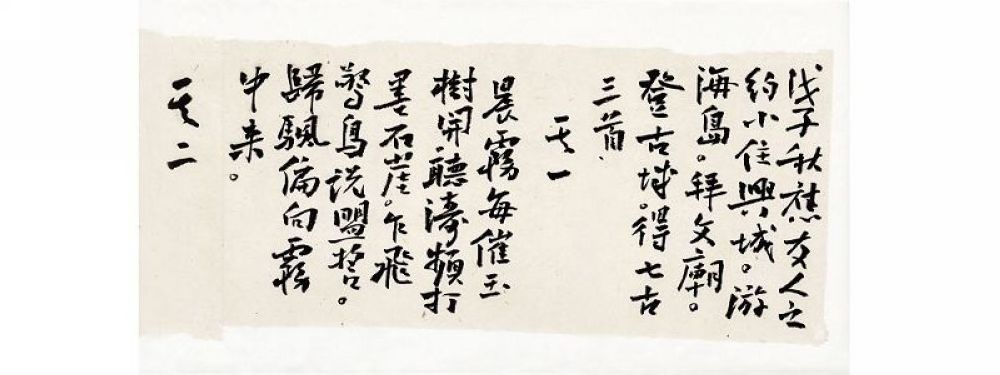 戊子秋蕉友人之
约小住興城。游
海島。拜文廟。
登古城。得七古
三首
其一
晨霧每催玉
樹開。聽濤頻打
墨石崖。乍飛
驚鳥説盟誓。
歸颿偏向霧
中来。
其二